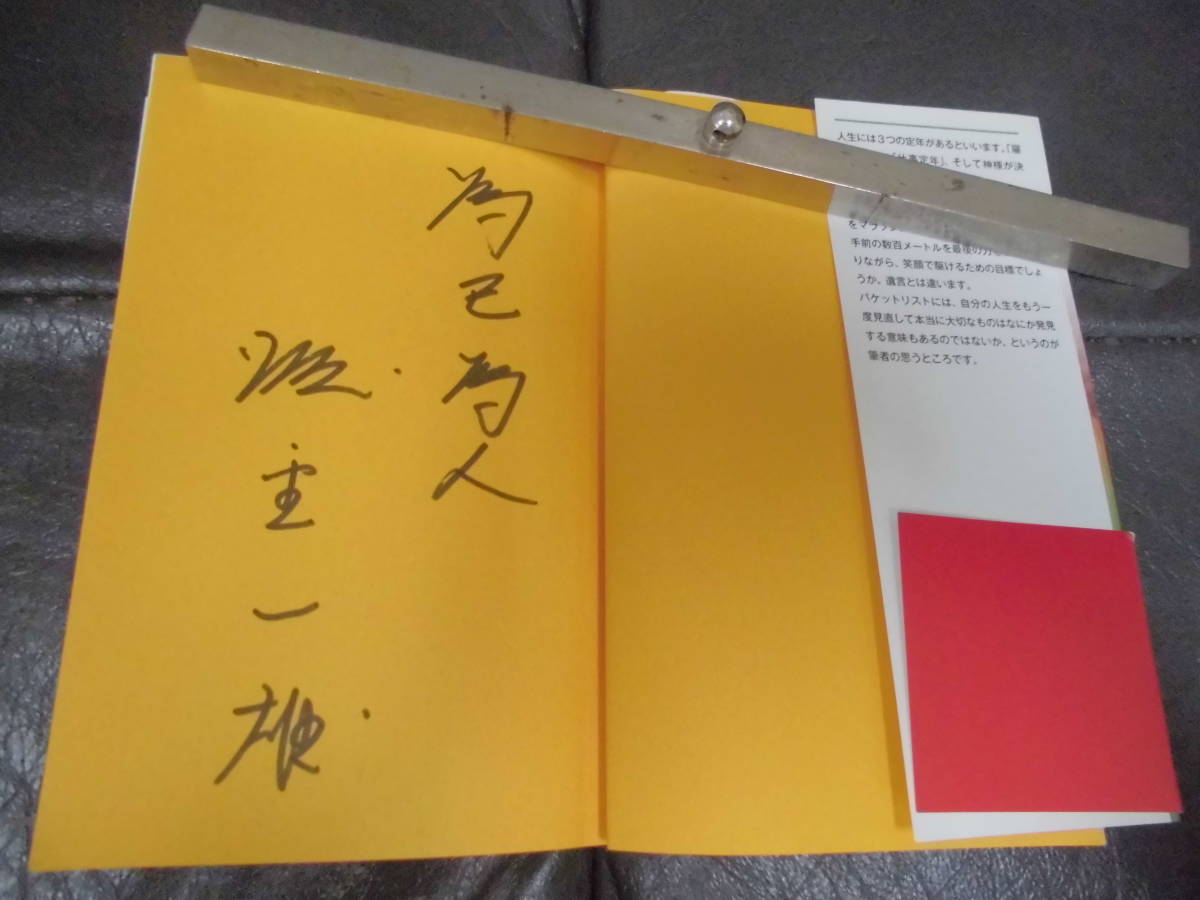 為己為人
一雄
人生には３つの定年があるといいます。「雇
事定年」、そして神様が決
をマラソン
手前の数百メートルを最後の力
りながら、笑顔で駆けるための目標でしょ
うか。遺言とは違います。
バケットリストには、自分の人生をもう一
度見直して本当に大切なものはなにか発見
する意味もあるのではないか、というのが
筆者の思うところです。